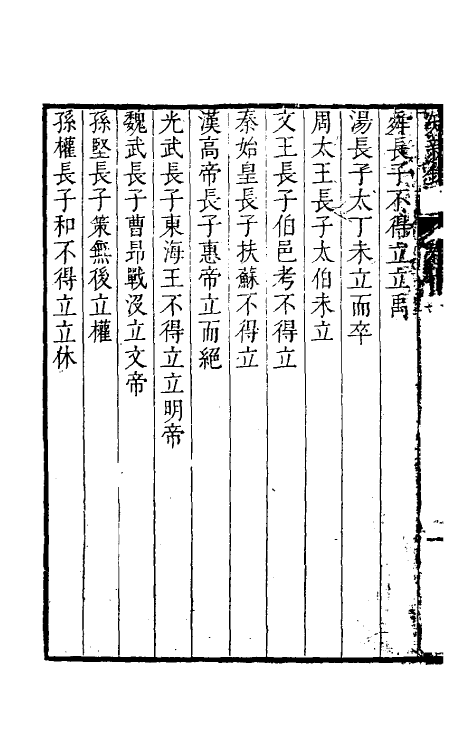 舜長子不得立立禹
湯長子太丁未立而卒
周太王長子太伯未立
文王長子伯邑考不得立
秦始皇長子扶蘇不得立
漢高帝長子惠帝立而絕
光武長子東海王不得立立明帝
魏武長子曹昂戰沒立文帝
孫堅長子策無後立權
孫權長子和不得立立休